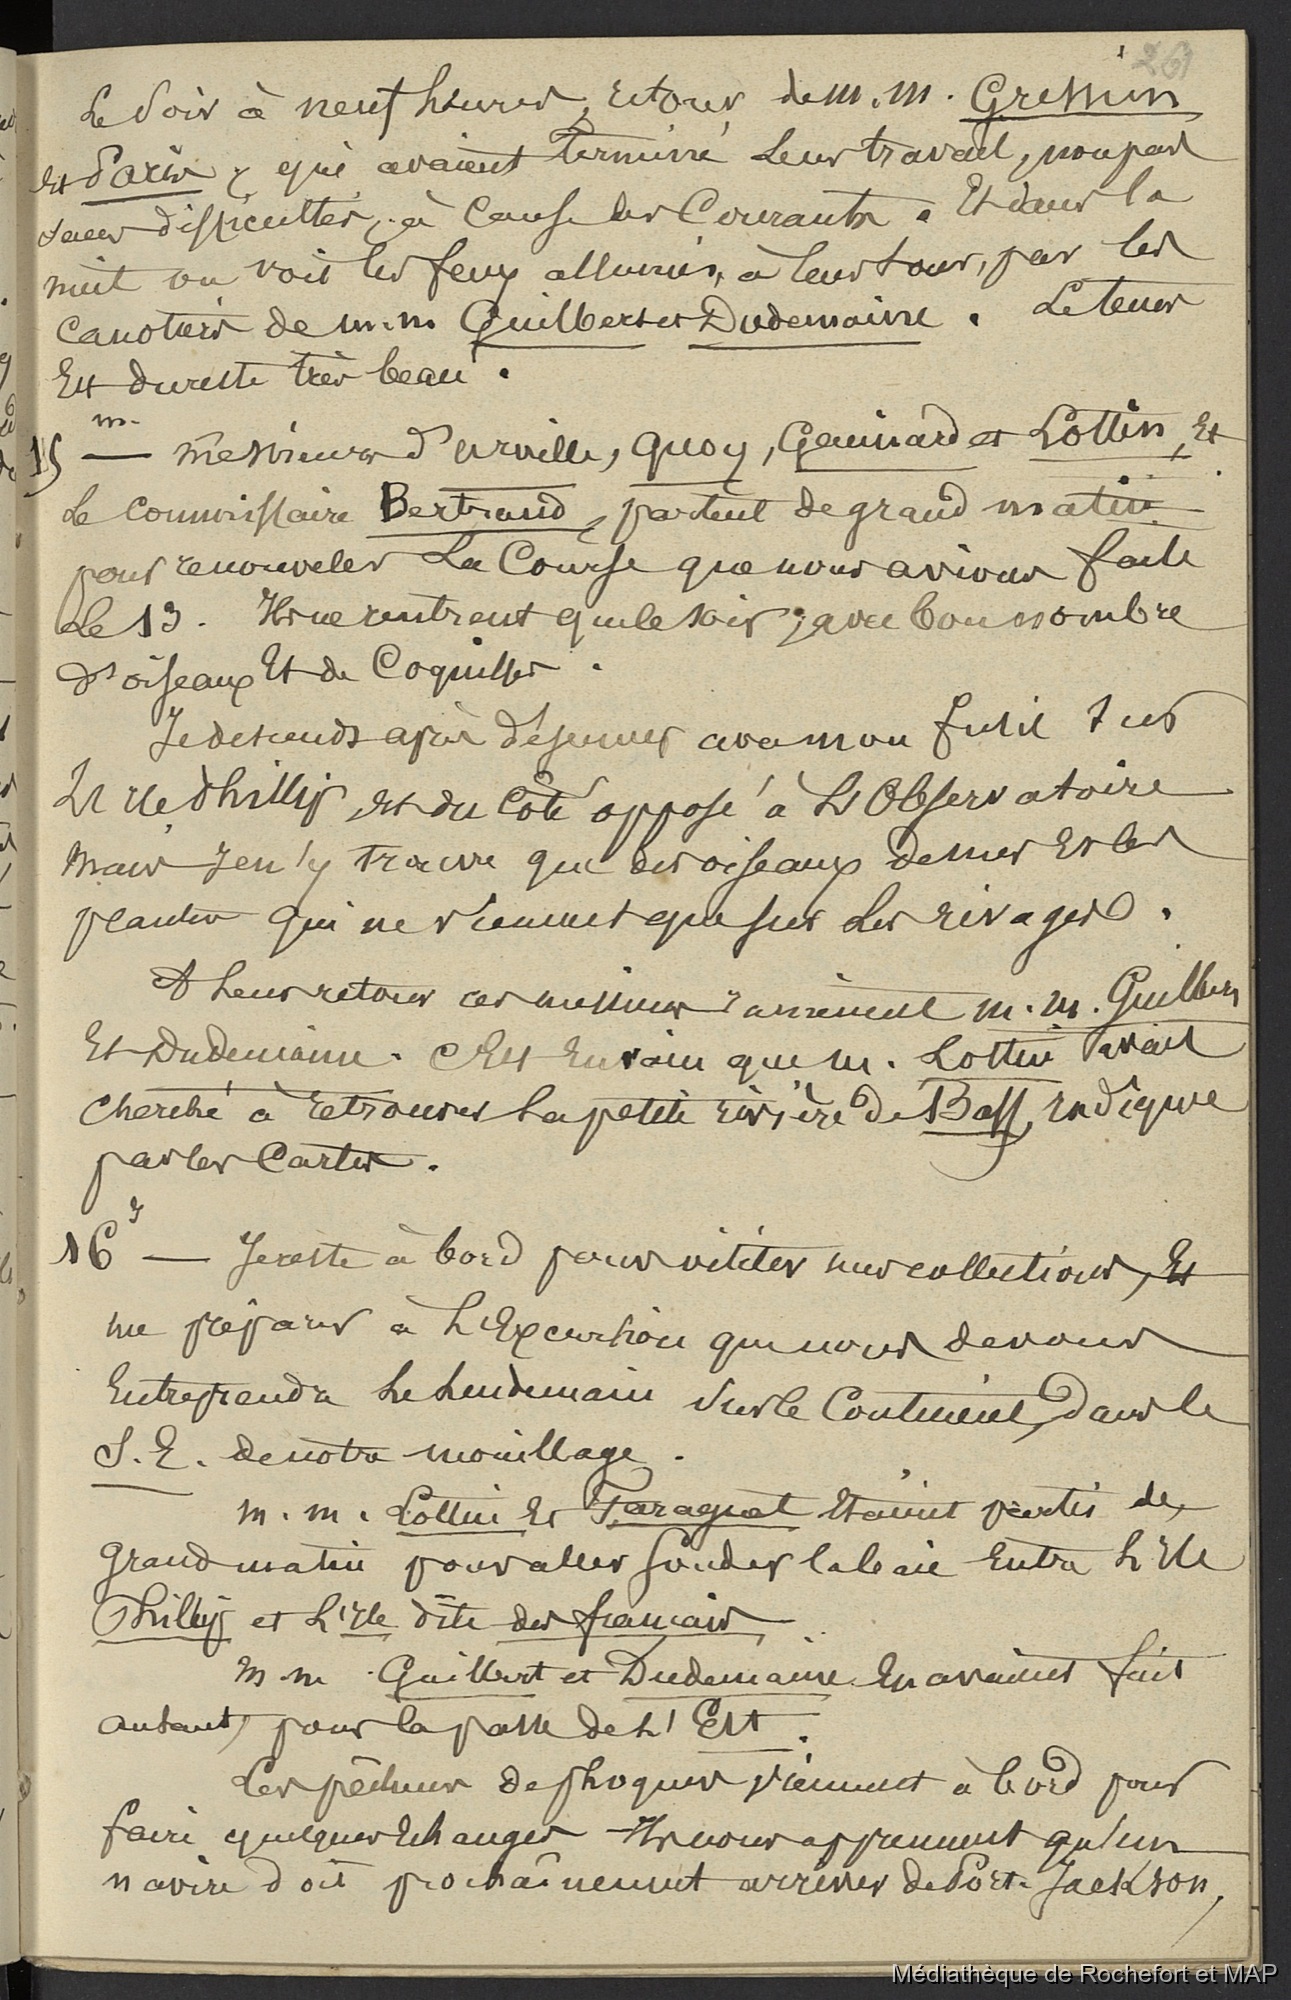 261
Le soir à neuf heures, retour de m.m. Gressien
et Paris, qui avaient terminé leur travail, non pas
sans difficultés, à cause des Courants. Et dans la
nuit on voit les feux allumés, à leur tour, par les
canotiers de m.m. Guilbert et Dudemaine. Le tems
Est du reste très beau.
15 m. — messieurs d'urville, quoy, Gaimard et Lottin, Et
Le commissaire Bertrand, partent de grand matin
pour renouveler La Course que nous avions faite
Le 13. Ils ne rentrent que le soir, avec bon nombre
d'oiseaux Et de Coquilles.
Je descends après déjeuner avec mon fusil sur
L'Ile Phillip, Et du Côté opposé à L'Observatoire
mais Je n'y trouve que des oiseaux de mer Et les
plantes qui ne viennent que sur les rivages.
A leur retour ces messieurs ramènent m.m. Guilbert
Et Dudemaine. C'Est En vain que m. Lottin avait
cherché à retrouver la petite rivière de Bass, indiquée
par les Cartes.
16 J — Je reste à bord pour visiter mes collections, Et
me préparer à L'Excursion que nous devons
Entreprendre Le Lendemain sur le Continent, dans le
S.E. de notre mouillage.
m.m. Lottin Et Faraguet Etaient partis de
grand matin pour aller sonder la baie Entre L'Ile
Phillip et L'Ile dite des francais.
m.m. Guilbert et Dudemaine En avaient fait
autant, pour la passe de L'Est.
Les pêcheurs de phoques viennent à bord pour
faire quelques Echanges. Ils nous apprennent qu'un
navire doit prochaînement arriver de Port-Jackson,
Médiathèque de Rochefort et MAP